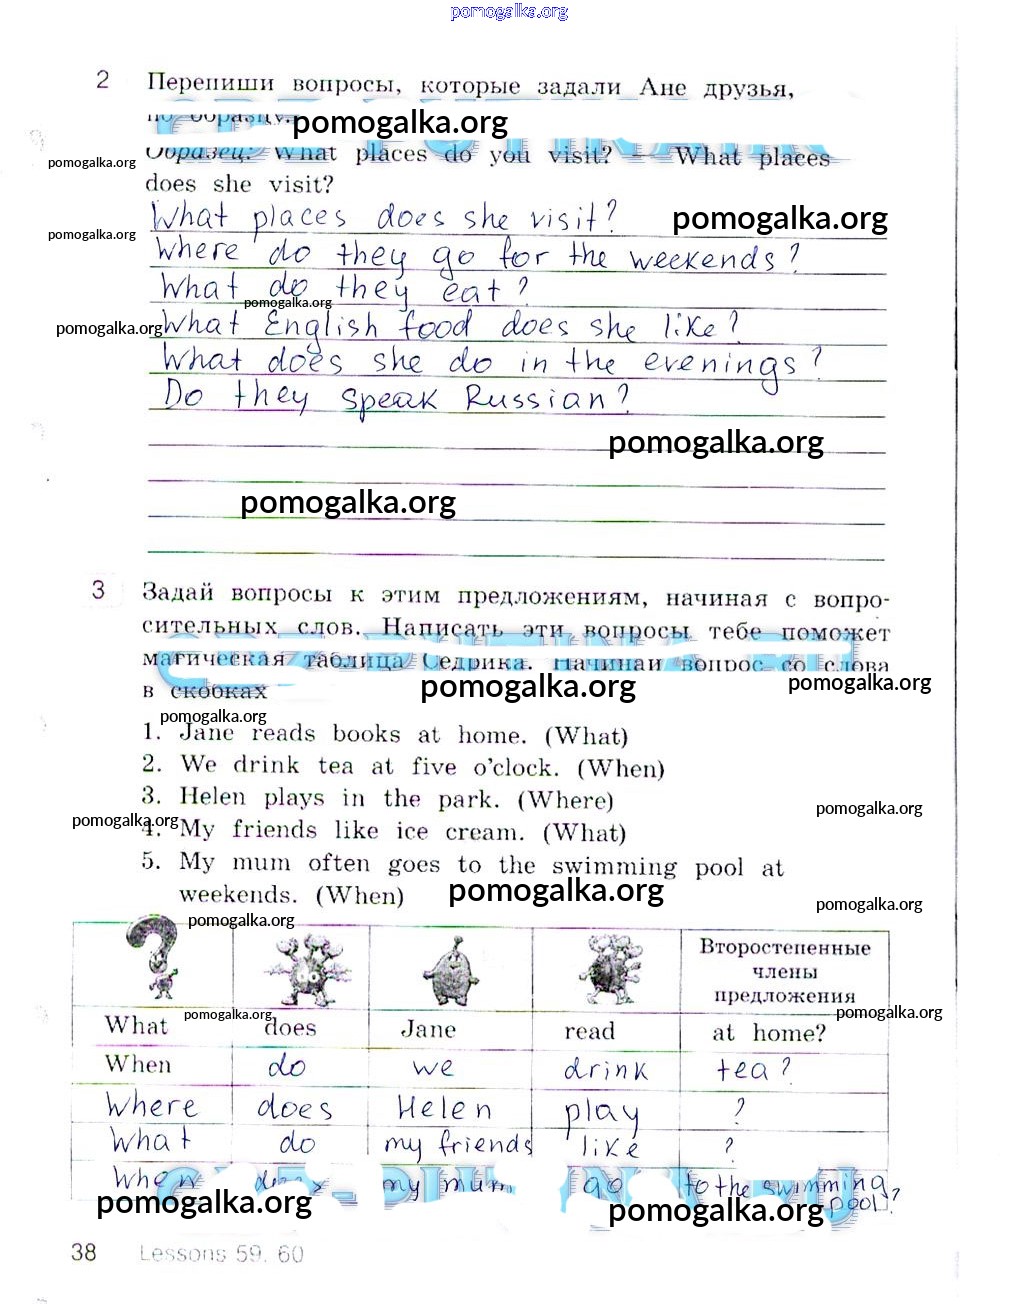 pomogalka.org
2 Перепиши вопросы, которые задали Ане друзья,
по образцу. pomogalka.org
pomogalka.org
Образец: What places do you visit? — What places
does she visit?
What places does she visit? pomogalka.org
pomogalka.org
Where do they go for the weekends?
What do they eat?
pomogalka.org
pomogalka.org
What English food does she like?
What does she do in the evenings?
Do they speak Russian?
pomogalka.org
pomogalka.org
3 Задай вопросы к этим предложениям, начиная с вопро-
сительных слов. Написать эти вопросы тебе поможет
магическая таблица Седрика. Начинай вопрос со слова
в скобках pomogalka.org pomogalka.org
pomogalka.org
1. Jane reads books at home. (What)
2. We drink tea at five o'clock. (When)
3. Helen plays in the park. (Where)
pomogalka.org
pomogalka.org
4. My friends like ice cream. (What)
5. My mum often goes to the swimming pool at
weekends. (When) pomogalka.org pomogalka.org
pomogalka.org
Второстепенные
члены
предложения
pomogalka.org pomogalka.org
What does Jane read at home?
When do we drink tea?
Where does Helen play ?
What do my friends like ?
When does my mum go to the swimming
pool?
pomogalka.org pomogalka.org
38 Lessons 59, 60